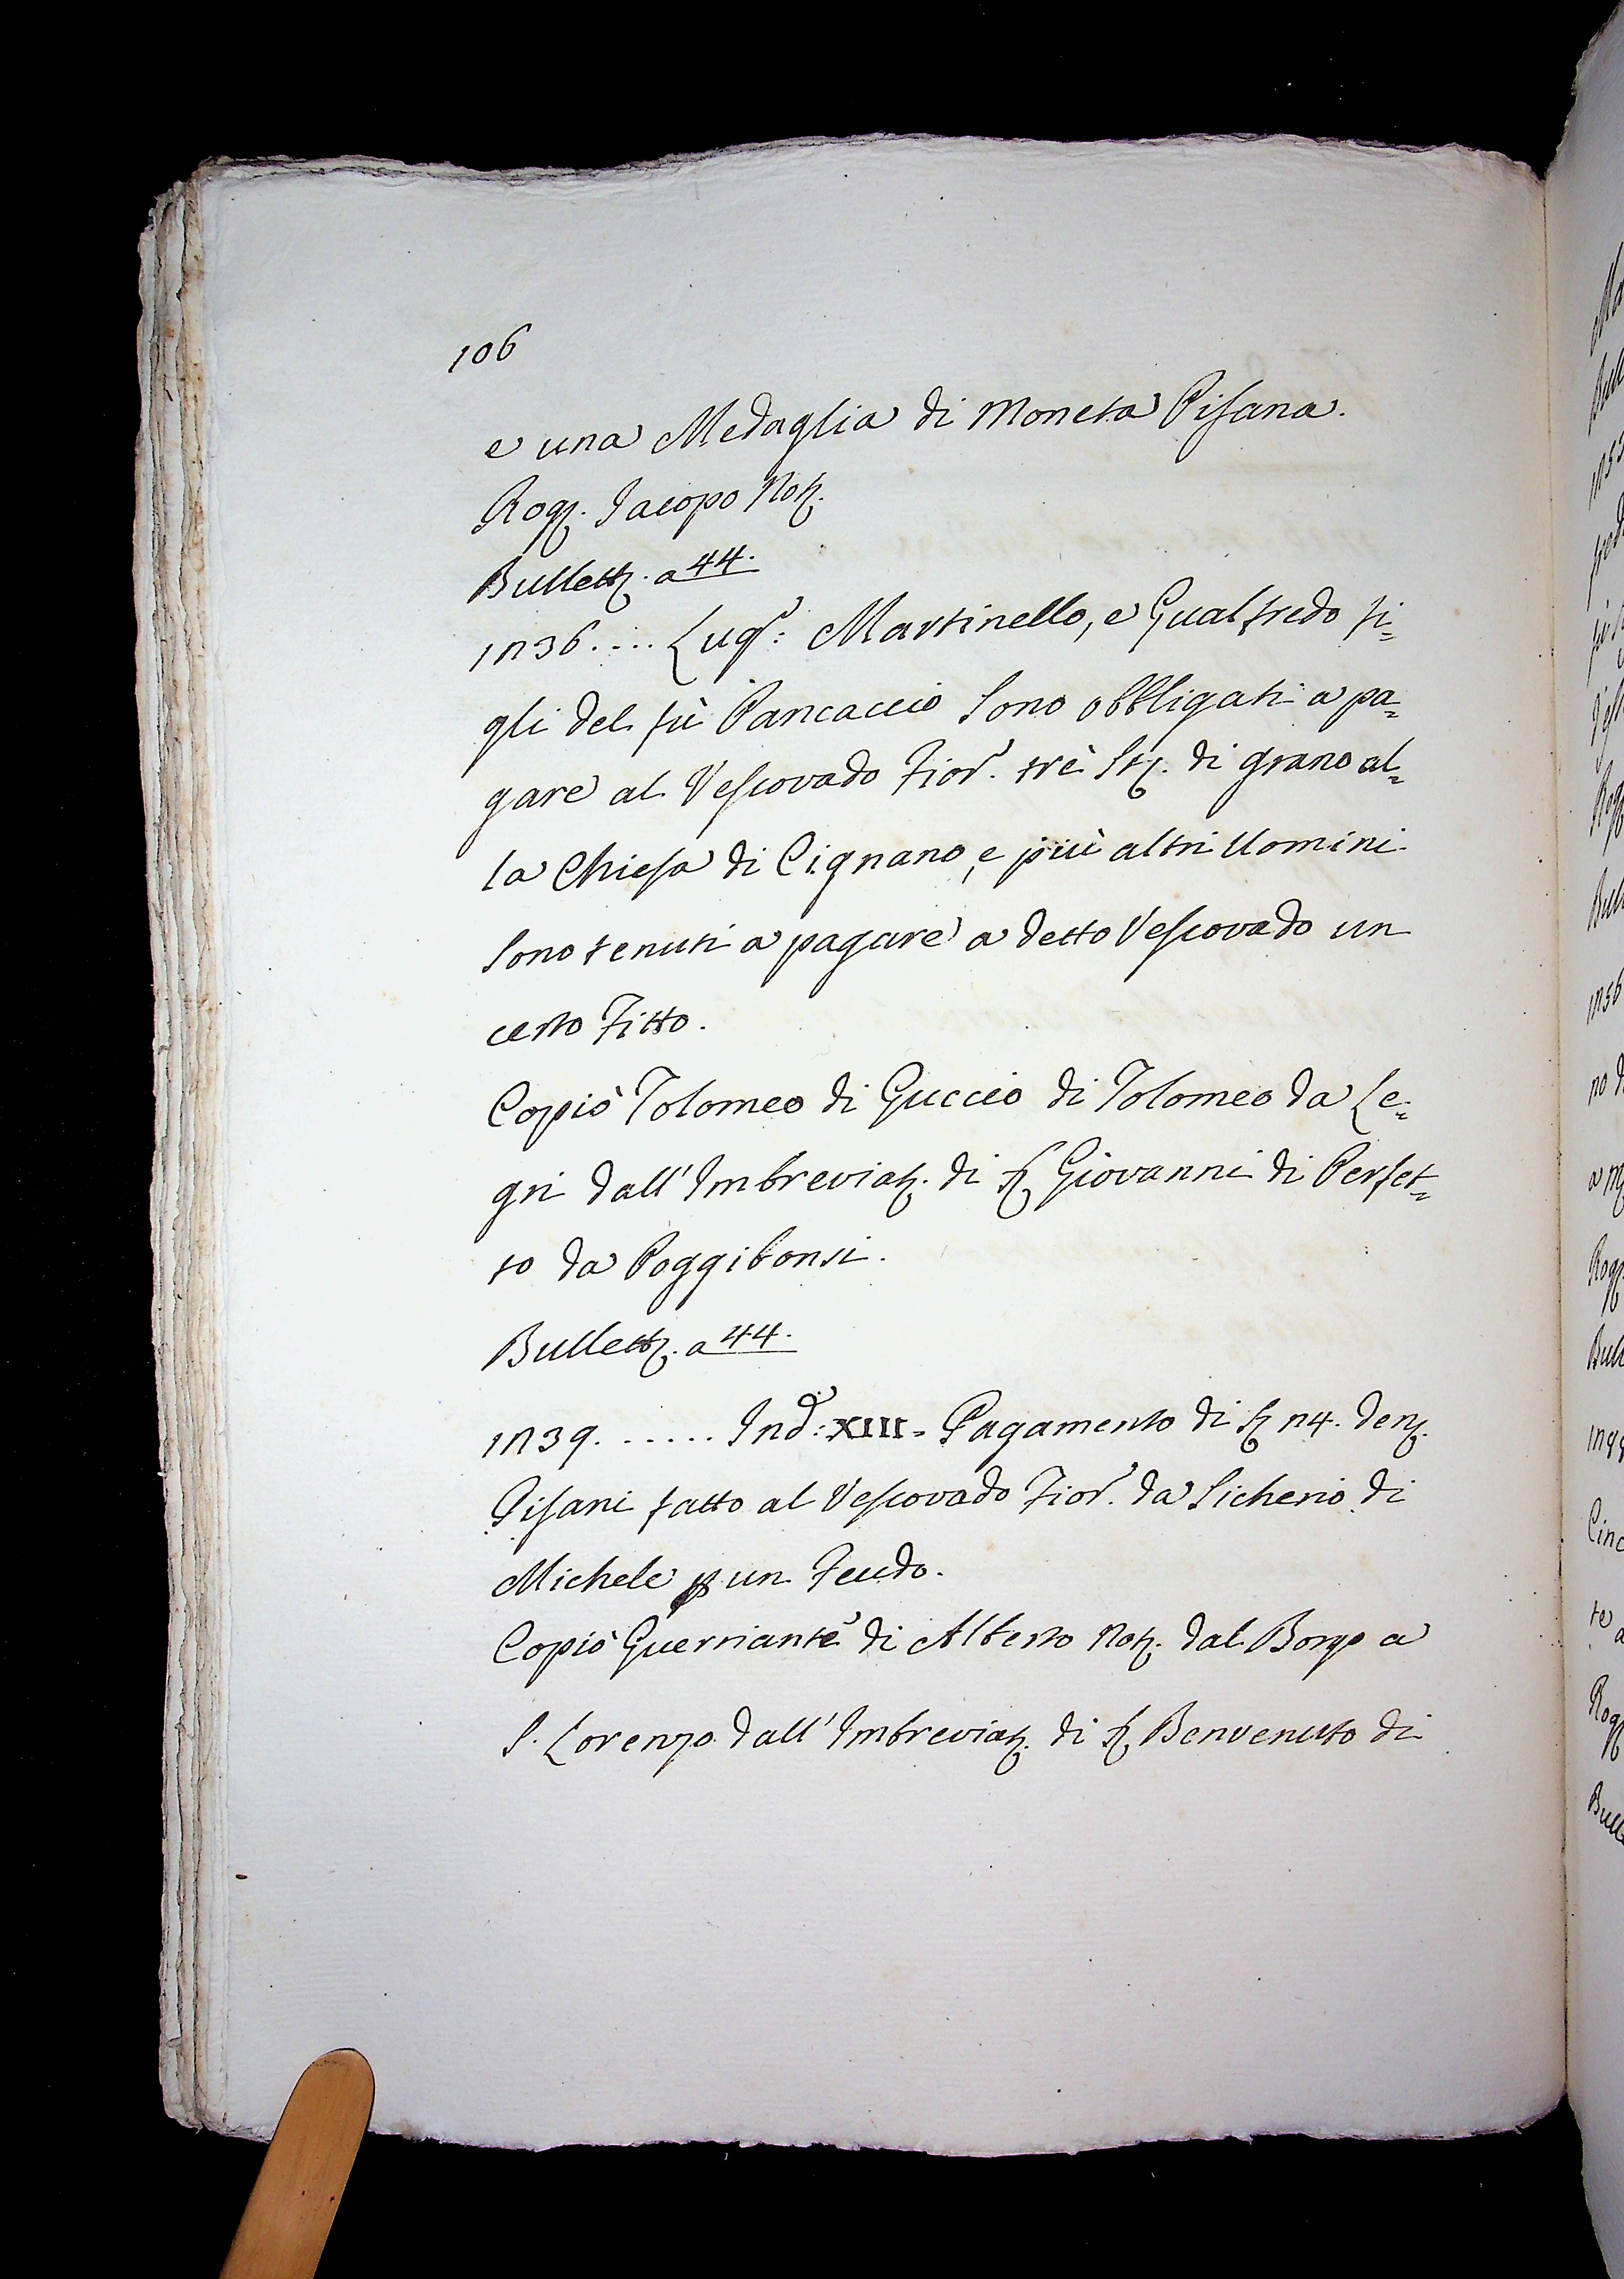 106
e una Medaglia di Moneta Pisana.
Rog. Jacopo Not.
Bullett. a 44.
1236.... Lugᵒ: Martinello, e Gualfredo fi=
gli del fù Pancaccio sono obbligati a pa=
gare al Vescovado Fior. trè st. di grano al=
la Chiesa di Cignano, e più altri Uomini
sono tenuti a pagare a detto Vescovado un
certo Fitto.
Copiò Tolomeo di Guccio di Tolomeo da Le=
gri dall'Imbreviat. di s. Giovanni di Perfet=
to da Poggibonsi.
Bullett. a 44.
1239. ..... Indᵉ: XIII = Pagamento di s. 24. den.
Pisani fatto al Vescovado Fior. da Sicherio di
Michele p un Feudo.
Copiò Guerriante di Alberto Not. dal Borgo a
S. Lorenzo dall'Imbreviat. di s. Benvenuto di